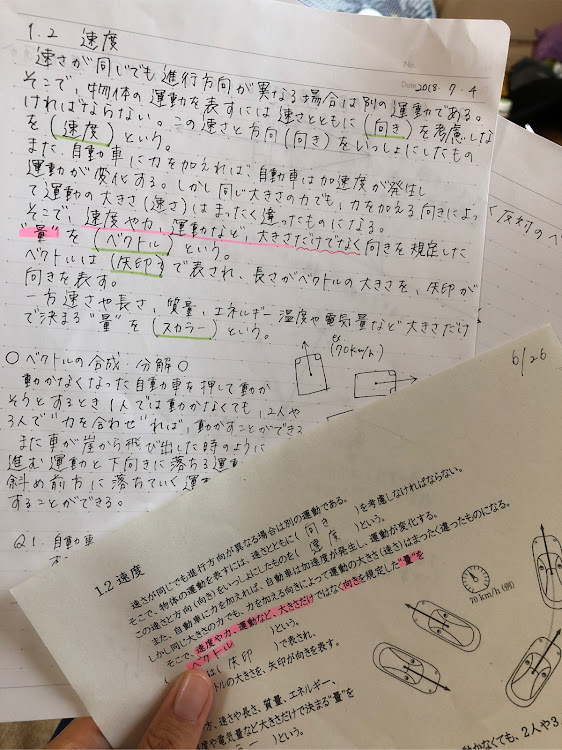 1.2 速度
No.
Date 2018. 7. 4
速さが同じでも進行方向が異なる場合は別の運動である。
そこで、物体の運動を表すには速さとともに(向き)を考慮しな
ければならない。この速さと方向(向き)をいっしょにしたもの
を(速度)という。
また、自動車に力を加えれば、自動車は加速度が発生し
運動が変化する。しかし同じ大きさの力でも、力を加える向きによっ
て運動の大きさ(速さ)はまったく違ったものになる。
そこで、速度や力、運動など、大きさだけでなく向きを規定した
"量"を(ベクトル)という。
ベクトルは(矢印)で表され、長さがベクトルの大きさを、矢印が
向きを表す。
一方速さや長さ、質量、エネルギー 温度や電気量など大きさだけ
で決まる"量"を(スカラー)という。
○ベクトルの合成・分解○
動かなくなった自動車を押して動か
そうとするとき1人では動かなくても、2人や
3人で"力を合わせ"れば、動かすことができる
また車が崖から飛び出した時のように
進む運動と下向きに落ちる運動
斜め前方に落ちていく運
することができる。
Q1. 自動車
(70km/h)
く反対のベ
6/26
1.2 速度
速さが同じでも進行方向が異なる場合は別の運動である。
そこで、物体の運動を表すには、速さとともに( 向き )を考慮しなければならない。
この速さと方向(向き)をいっしょにしたものを( 速度 )という。
また、自動車に力を加えれば、自動車は加速度が発生し、運動が変化する。
しかし同じ大きさの力でも、力を加える向きによって運動の大きさ(速さ)はまったく違ったものになる。
そこで、速度や力、運動など、大きさだけではなく向きを規定した"量"を
( ベクトル )という。
は( 矢印 )で表され、
トルの大きさを、矢印が向きを表す。
方、速さや長さ、質量、エネルギー、
度や電気量など大きさだけで決まる"量"を
)という。
70 km/h (例)
動かなくても、2人や3